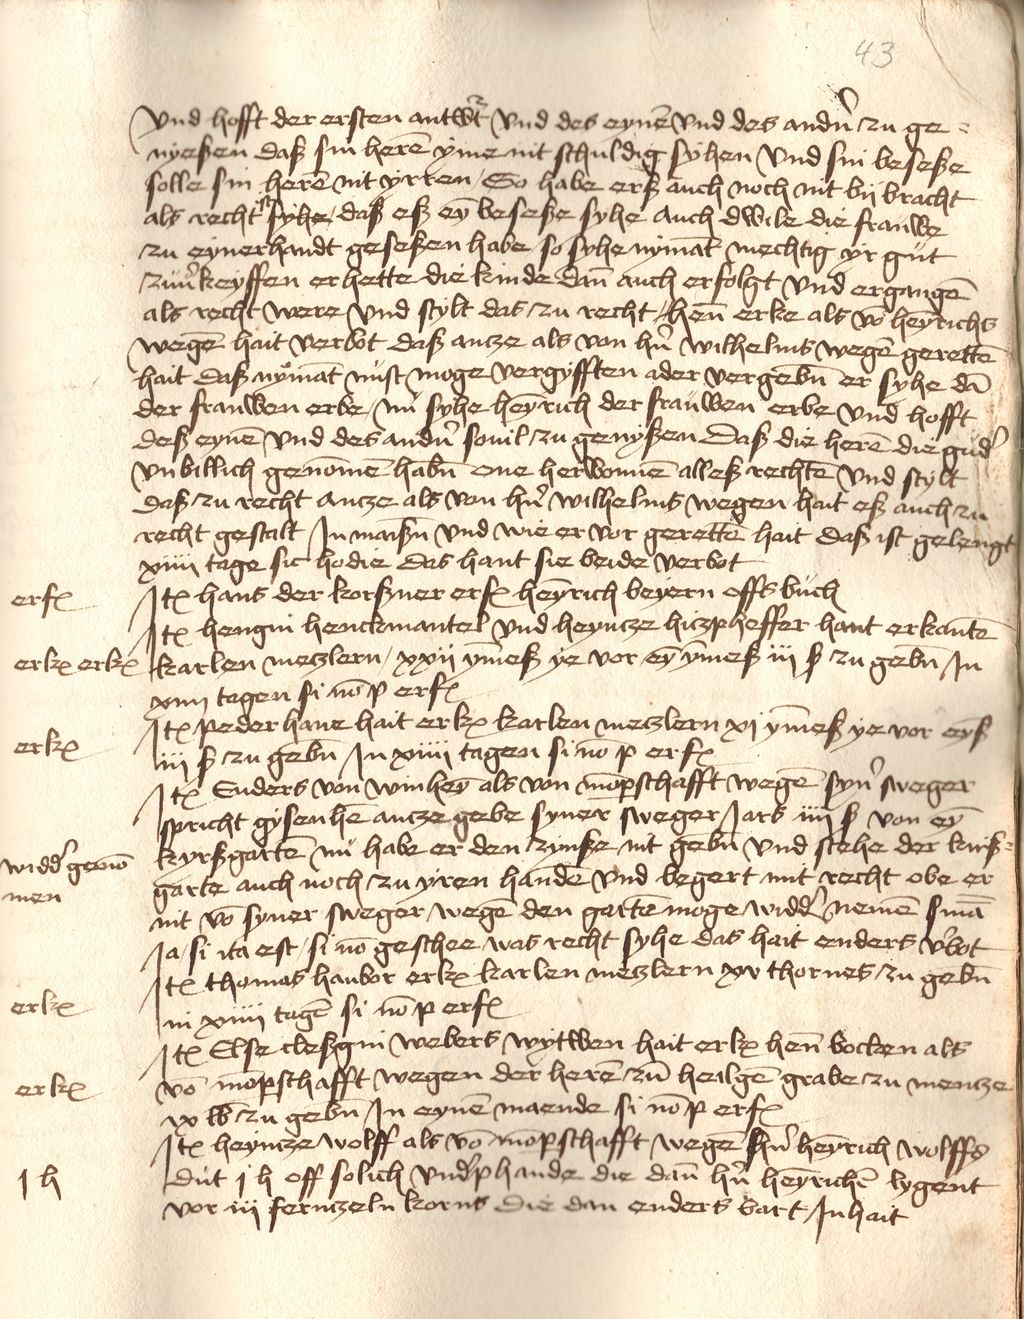 43
Vnd hofft der ersten antwt Vnd des eynē Vnd des andn̄ zu ge-
nyeßen daß sin herē yme nit schuldig syhen Vnd sin beseße
solle sin herē nit yrren / So habe erß auch noch nit bij bracht
als recht syhe / daß eß eȳ beseße syhe auch dwile die frauwe
zu eynerhandt geseßen habe so syhe nymāt mechtig yr gut
zuuˀkeyffen er hette die kinde dan̄ auch erfolgt Vnd ergangē
als recht were Vnd stylt das zu recht / hen̄ erke als vō heȳrichs
wegē hait verbot daß ancze als von hˀn wilhelms wegē gerettē
hait daß nymāt nust moge vergyfften ader vergebn̄ er syhe dā
der frauwen erbe / nu syhe heȳrich der frauwen erbe Vnd hofft
deß eynē Vnd des andn̄ souil zu genyßen Daß die herē die gudˀ
vnbillich genōmē habn̄ one herwonnē alleß rechtē Vnd stylt
daß zu recht Ancze als von hˀn wilhelms wegen hait eß auch zu
recht gestalt Jn maißn̄ Vnd wie er vor gerettē hait daß ist gelengt
xiiij tage sic hodie das hant sie beide verbot
erfꝭ
Jtꝭ hans der korßner erfꝭ heȳrich beyern offs buch
Jtꝭ hengin henckmantel Vnd heyncze hiczpheffer hant erkantē
erkꝭ erkꝭ
karlen meczlern / xxij ym̄eß ye vor eȳ ym̄eß iij ß zu gebn̄ Jn
xiiij tagen si nō p erfꝭ
Jtꝭ peder hane hait erkꝭ karlen meczlern xj ym̄eß ye vor eyß
erkꝭ
iij ß zu gebn̄ Jn xiiij tagen si nō p erfꝭ
Jtꝭ Enders von winheȳ als von mōpschafft wegē synˀ sweger
spricht gysenhē ancze gebe syner sweger Jars iiij ß von eȳ
widdˀ genō
men
kyrßgartē nu habe er den zynße nit gebn̄ Vnd stehe der kirß-
garte auch noch zu yren handē Vnd begert mit recht obe er
nit vō syner sweger wegē den gartē moge widdˀ nemē smā
Ja si ita est / si nō geschee was recht syhe das hait enders vˀbot
Jtꝭ thomas haubor erkꝭ karlen meczlern xv thornes zu gebn̄
erkꝭ
in xiiij tagē si nō p erfꝭ
Jtꝭ Else cleßgin webers wytwen hait erkꝭ hen̄ bocken als
erkꝭ
vō mōpschafft wegen der herē zū heilgē grabe zu mencze
xv lb zu gebn̄ Jn eynē maende si nō p erfꝭ
Jtꝭ heyncze wolff als vō mōpschafft wegē hˀn heyrich wolffs
1 h
dut 1 h off solich vndˀphande die dan̄ hˀn heȳrichē lygent
vor iij fernczeln korns die dan enders bart Jnhait